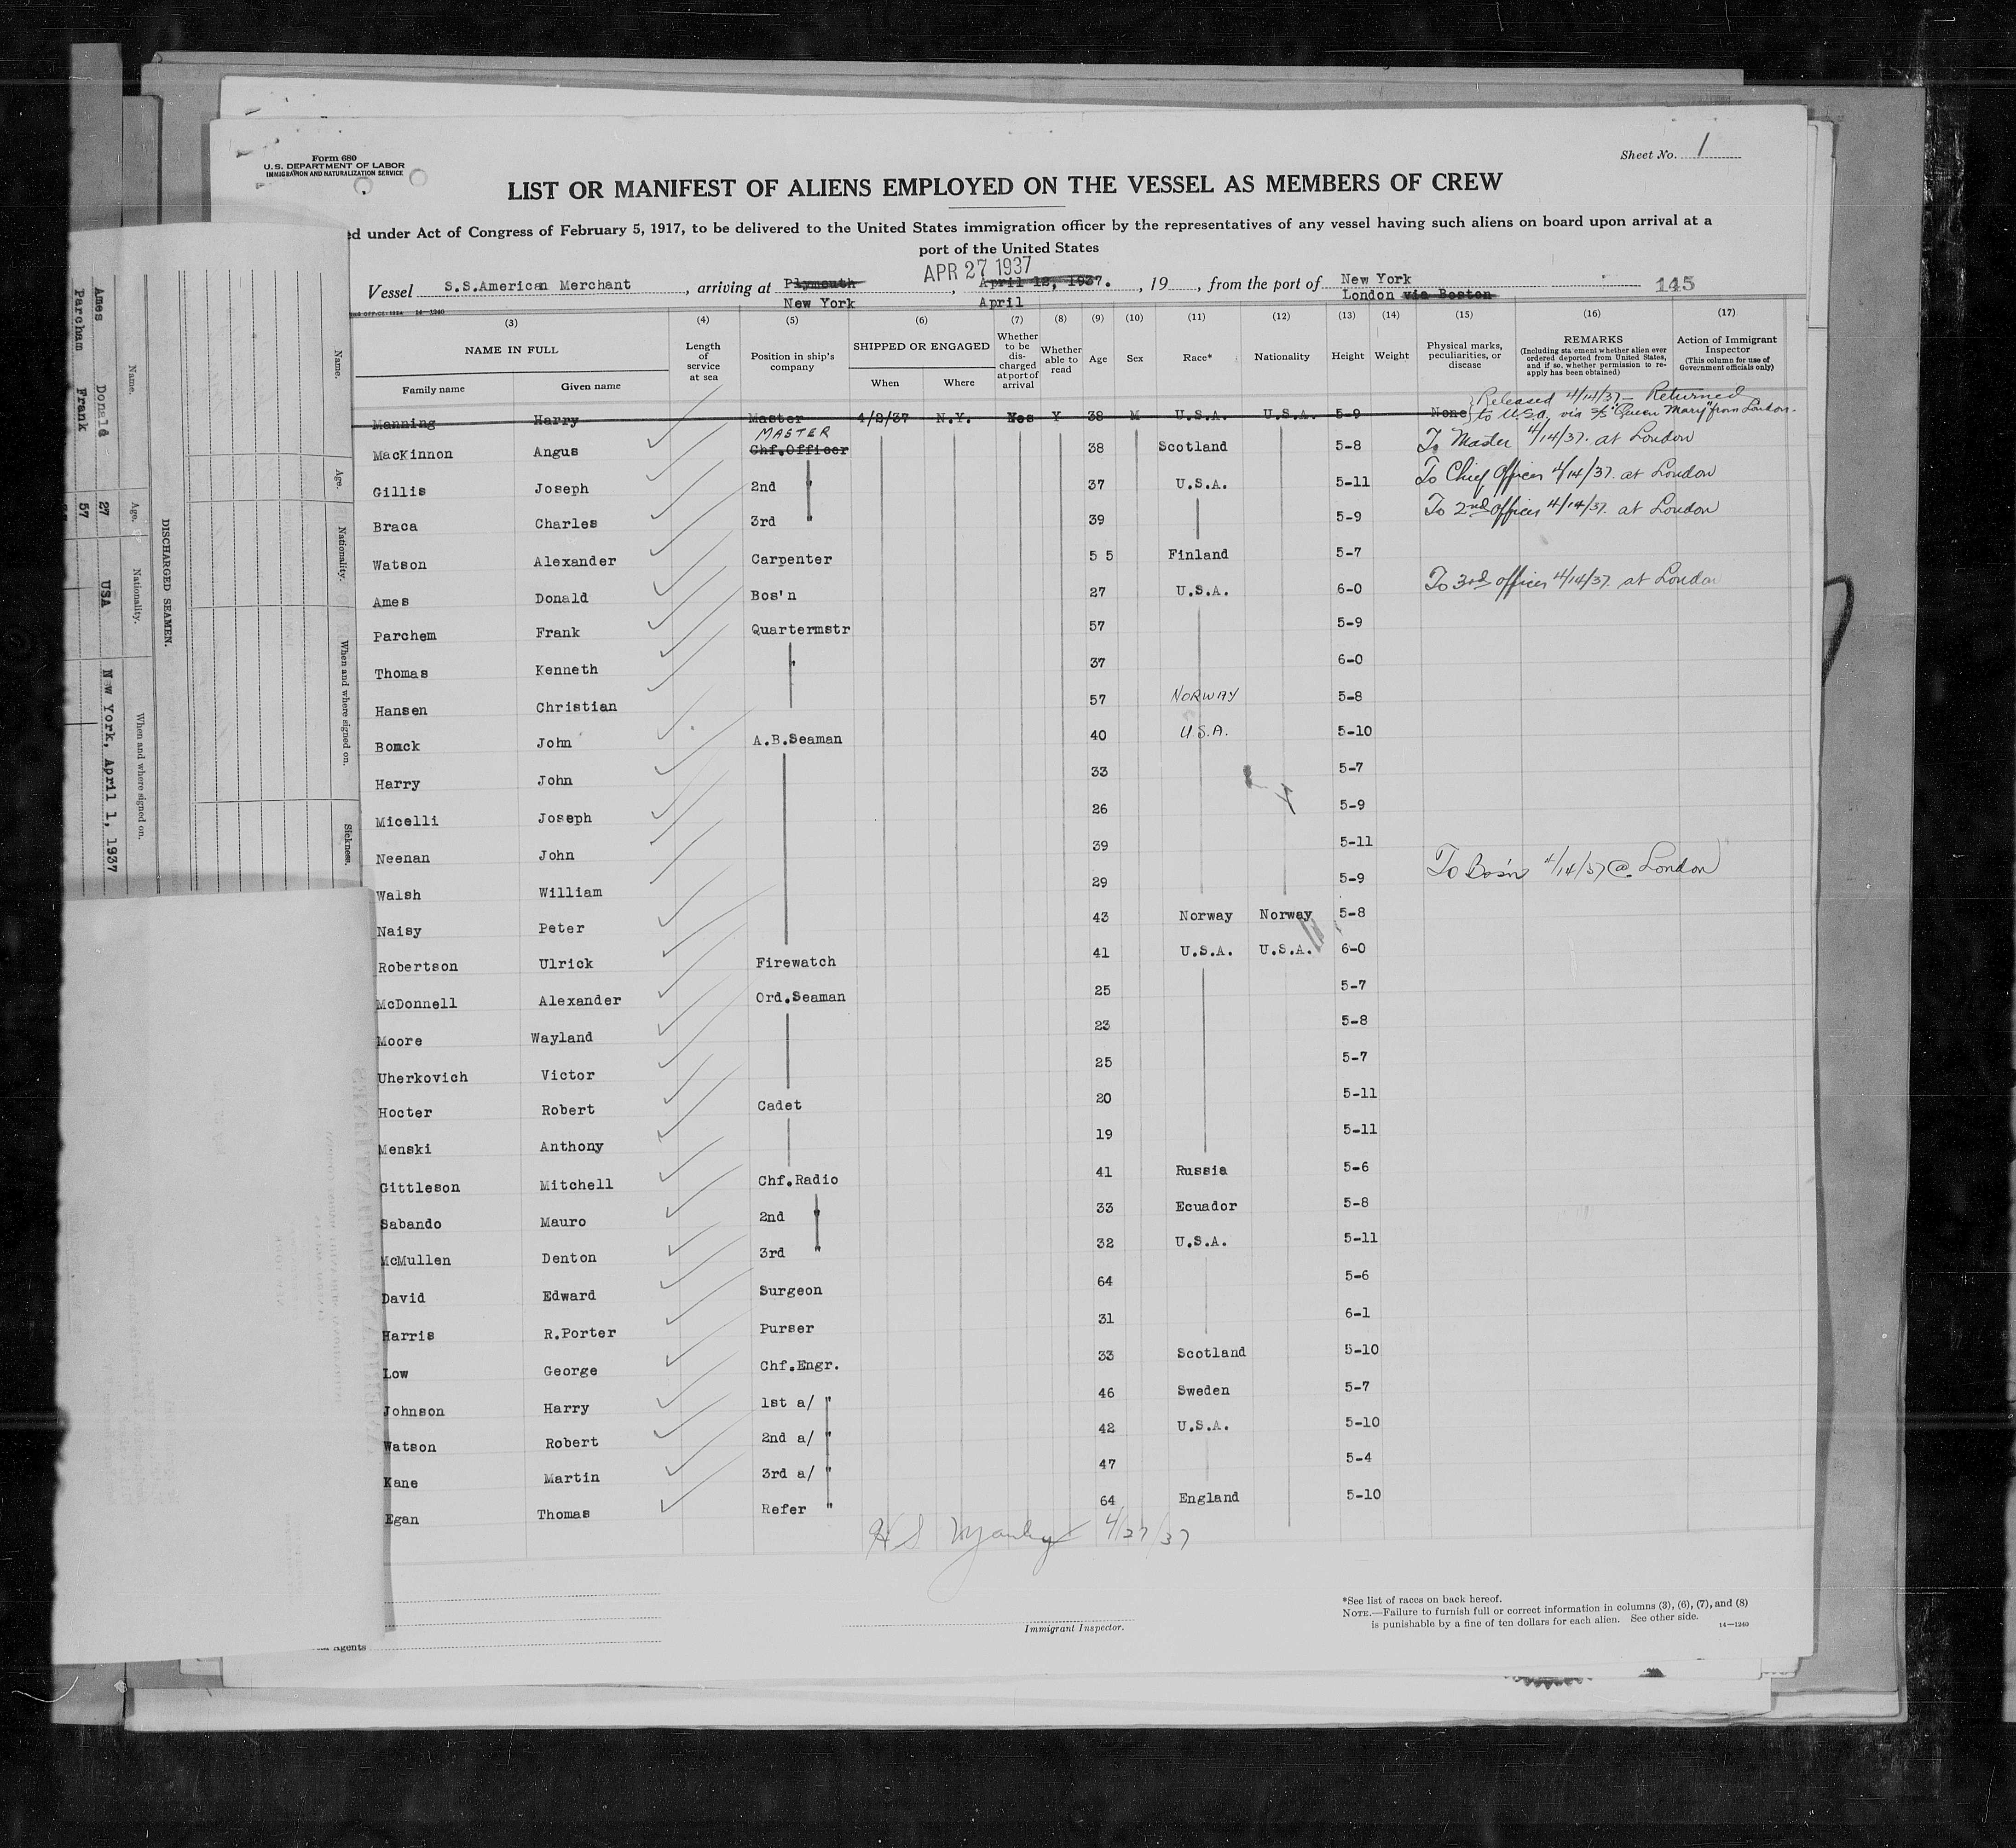 Form 680
U.S. DEPARTMENT OF LABOR
IMMIGRATION AND NATURALIZATION SERVICE
Sheet No. 1
LIST OR MANIFEST OF ALIENS EMPLOYED ON THE VESSEL AS MEMBERS OF CREW
ed under Act of Congress of February 5, 1917, to be delivered to the United States immigration officer by the representatives of any vessel having such aliens on board upon arrival at a
port of the United States
APR 27 1937
Vessel S.S.American Merchant, arriving at Plymouth, April 12, 1937., 19, from the port of New York 145
New York April London via Boston
14—1240
(3) (4) (5) (6) (7) (8) (9) (10) (11) (12) (13) (14) (15) (16) (17)
NAME IN FULL
Family name Given name
Length of service at sea
Position in ship's company
SHIPPED OR ENGAGED
When Where
Whether to be discharged at port of arrival
Whether able to read
Age Sex Race* Nationality Height Weight
Physical marks, peculiarities, or disease
REMARKS
(Including statement whether alien ever ordered deported from United States, and if so, whether permission to reapply has been obtained)
Action of Immigrant Inspector
(This column for use of Government officials only)
Manning Harry Master 4/2/37 N.Y. Yes Y 38 M U.S.A. U.S.A. 5-9 None Released 4/14/37 – Returned
to U.S.A. via S/S "Queen Mary" from London.
MacKinnon Angus MASTER Chf.Officer 38 Scotland 5-8 To Master 4/14/37. at London
Gillis Joseph 2nd " 37 U.S.A. 5-11 To Chief Officer 4/14/37. at London
Braca Charles 3rd " 39 5-9 To 2nd Officer 4/14/37. at London
Watson Alexander Carpenter 5 5 Finland 5-7
Ames Donald Bos'n 27 U.S.A. 6-0 To 3rd officer 4/14/37. at London
Parchem Frank Quartermstr 57 5-9
Thomas Kenneth " 37 6-0
Hansen Christian 57 NORWAY 5-8
Bomck John A.B.Seaman 40 U.S.A. 5-10
Harry John 33 5-7
Micelli Joseph 26 5-9
Neenan John 39 5-11
Walsh William 29 5-9 To Bos'n 4/14/37 @ London
Naisy Peter 43 Norway Norway 5-8
Robertson Ulrick Firewatch 41 U.S.A. U.S.A. 6-0
McDonnell Alexander Ord.Seaman 25 5-7
Moore Wayland 23 5-8
Uherkovich Victor 25 5-7
Hocter Robert Cadet 20 5-11
Menski Anthony 19 5-11
Gittleson Mitchell Chf.Radio 41 Russia 5-6
Sabando Mauro 2nd " 33 Ecuador 5-8
McMullen Denton 3rd " 32 U.S.A. 5-11
David Edward Surgeon 64 5-6
Harris R.Porter Purser 31 6-1
Low George Chf.Engr. 33 Scotland 5-10
Johnson Harry 1st a/ " 46 Sweden 5-7
Watson Robert 2nd a/ " 42 U.S.A. 5-10
Kane Martin 3rd a/ " 47 5-4
Egan Thomas Refer " 64 England 5-10
4/27/37
Immigrant Inspector.
Agents
*See list of races on back hereof.
NOTE.—Failure to furnish full or correct information in columns (3), (6), (7), and (8)
is punishable by a fine of ten dollars for each alien. See other side.
14—1240
DISCHARGED SEAMEN.
Name. Age. Nationality. When and where signed on.
Ames Donald 27 USA New York, April 1, 1937
Parcham Frank 57
Name. Age. Nationality. When and where signed on. Sickness.